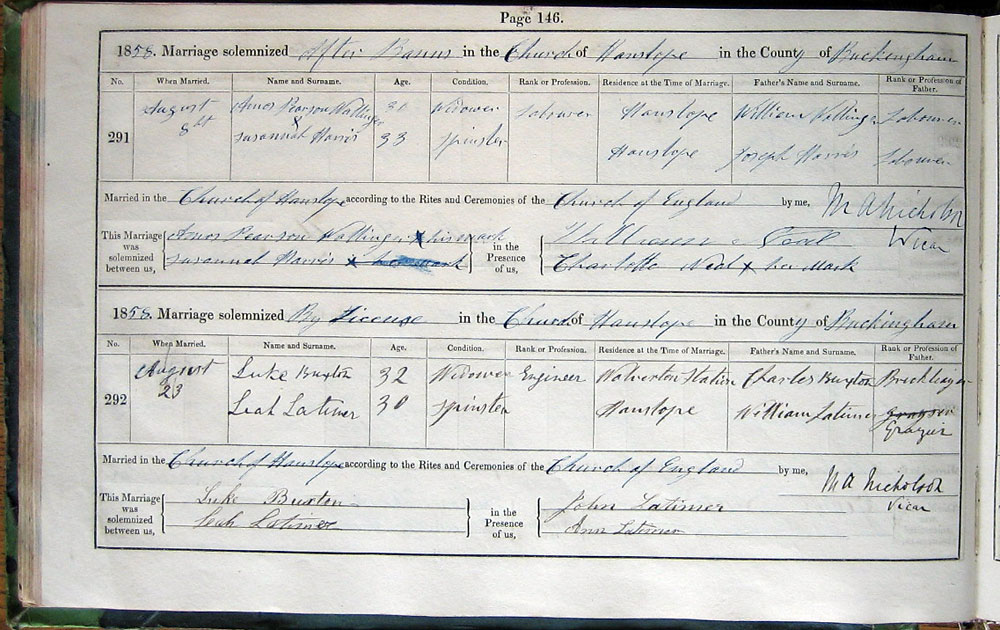 Page 146.
1858. Marriage solemnized After Banns in the Church of Hanslope in the County of Buckingham
No. When Married. Name and Surname. Age. Condition. Rank or Profession. Residence at the Time of Marriage. Father's Name and Surname. Rank or Profession of Father.
291 August 8th Amos Pearson Widower Labourer Hanslope William Labourer
&
Susannah Harris 33 Spinster Hanslope Joseph Harris Labourer
Married in the Church of Hanslope according to the Rites and Ceremonies of the Church of England by me, M A Nicholson
Vicar
This Marriage was solemnized between us, Amos Pearson x his mark in the Presence of us, William
Susannah Harris x Charlotte Neal x her Mark
1858. Marriage solemnized By License in the Church of Hanslope in the County of Buckingham
No. When Married. Name and Surname. Age. Condition. Rank or Profession. Residence at the Time of Marriage. Father's Name and Surname. Rank or Profession of Father.
292 August 23 Luke Buxton 32 Widower Engineer Wolverton Station Charles Buxton Bricklayer
Leah Latimer 30 Spinster Hanslope William Latimer Grazier
Married in the Church of Hanslope according to the Rites and Ceremonies of the Church of England by me, M A Nicholson
Vicar
This Marriage was solemnized between us, Luke Buxton in the Presence of us, John Latimer
Leah Latimer Ann Latimer